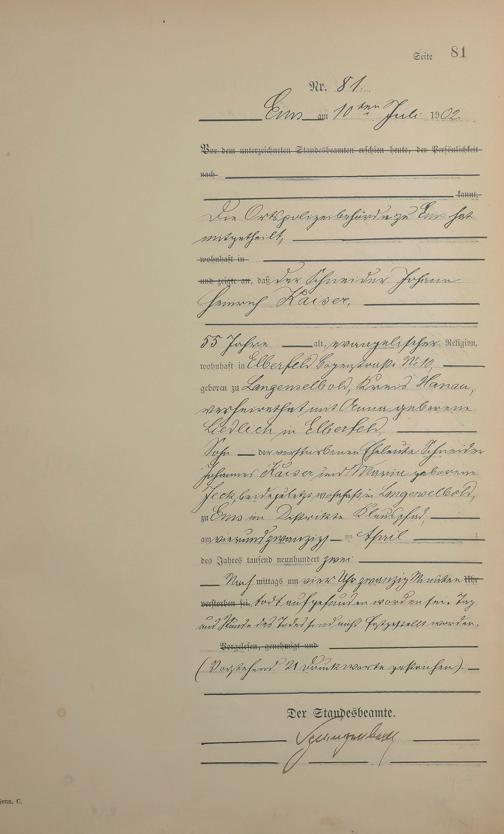 Seite 81
Nr. 81.
Ems am 10ten Juli 1902.
Vor dem unterzeichneten Standesbeamten erschien heute, der Persönlichkeit
nach
kannt,
Die Ortspolizeibehörde zu Ems hat
mitgetheilt,
wohnhaft in
und zeigte an, daß der Schneider Johann
Heinrich Kaiser,
55 Jahre alt, evangelischer Religion,
wohnhaft in Elberfeld No 10,
geboren zu Langenselbold, Kreis Hanau,
verheirathet mit Anna geborene
Liedlich in Elberfeld,
Sohn der verstorbenen Eheleute Schneider
Johannes Kaiser, und Maria geborene
beide zuletzt wohnhaft in Langenselbold,
zu Ems im Distrikte
am vierundzwanzig ten April
des Jahres tausend neunhundert zwei
Nachmittags um vier Uhr zwanzig Minuten Uhr
verstorben sei, todt aufgefunden worden sei. Tag
und Stunde des Todes sind nicht festgestellt worden.
Vorgelesen, genehmigt und
(Vorstehend 21 Druckworte gestrichen).
Der Standesbeamte.